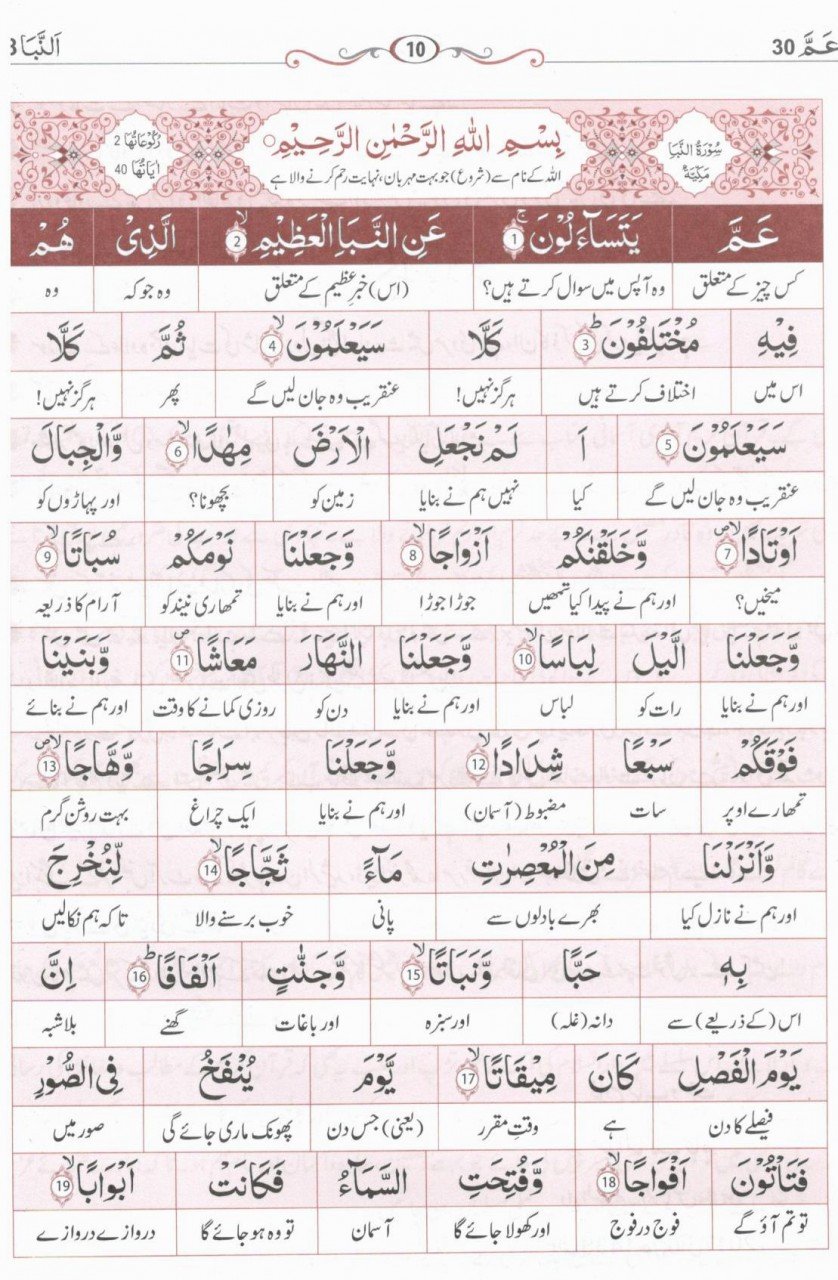 عَمَّ 30
10
اَلنَّبَا
سُوْرَةُ النَّبَا
مَكِّيَّةٌ
بِسْمِ اللهِ الرَّحْمٰنِ الرَّحِيْمِ
اللہ کے نام سے (شروع) جو بہت مہربان، نہایت رحم کرنے والا ہے
رُكُوْعَاتُهَا 2
اٰيَاتُهَا 40
عَمَّ يَتَسَآءَلُوْنَ ۚ 1 عَنِ النَّبَاِ الْعَظِيْمِ ۙ 2 الَّذِىْ هُمْ
کس چیز کے متعلق وہ آپس میں سوال کرتے ہیں؟ (اس) خبرِ عظیم کے متعلق وہ جو کہ وہ
فِيْهِ مُخْتَلِفُوْنَ ؕ 3 كَلَّا سَيَعْلَمُوْنَ ۙ 4 ثُمَّ كَلَّا
اس میں اختلاف کرتے ہیں ہرگز نہیں! عنقریب وہ جان لیں گے پھر ہرگز نہیں!
سَيَعْلَمُوْنَ 5 اَ لَمْ نَجْعَلِ الْاَرْضَ مِهٰدًا ۙ 6 وَّالْجِبَالَ
عنقریب وہ جان لیں گے کیا نہیں ہم نے بنایا زمین کو بچھونا؟ اور پہاڑوں کو
اَوْتَادًا ۙ 7 وَّخَلَقْنٰكُمْ اَزْوَاجًا ۙ 8 وَّجَعَلْنَا نَوْمَكُمْ سُبَاتًا ۙ 9
میخیں؟ اور ہم نے پیدا کیا تمھیں جوڑا جوڑا اور ہم نے بنایا تمھاری نیند کو آرام کا ذریعہ
وَّجَعَلْنَا الَّيْلَ لِبَاسًا ۙ 10 وَّجَعَلْنَا النَّهَارَ مَعَاشًا 11 وَّبَنَيْنَا
اور ہم نے بنایا رات کو لباس اور ہم نے بنایا دن کو روزی کمانے کا وقت اور ہم نے بنائے
فَوْقَكُمْ سَبْعًا شِدَادًا ۙ 12 وَّجَعَلْنَا سِرَاجًا وَّهَّاجًا ۙ 13
تمھارے اوپر سات مضبوط (آسمان) اور ہم نے بنایا ایک چراغ بہت روشن گرم
وَّاَنْزَلْنَا مِنَ الْمُعْصِرٰتِ مَآءً ثَجَّاجًا ۙ 14 لِّنُخْرِجَ
اور ہم نے نازل کیا بھرے بادلوں سے پانی خوب برسنے والا تاکہ ہم نکالیں
بِهٖ حَبًّا وَّنَبَاتًا ۙ 15 وَّجَنّٰتٍ اَلْفَافًا ؕ 16 اِنَّ
اس (کے ذریعے) سے دانہ (غلہ) اور سبزہ اور باغات گھنے بلاشبہ
يَوْمَ الْفَصْلِ كَانَ مِيْقَاتًا ۙ 17 يَّوْمَ يُنْفَخُ فِى الصُّوْرِ
فیصلے کا دن ہے وقتِ مقرر (یعنی) جس دن پھونک ماری جائے گی صور میں
فَتَاْتُوْنَ اَفْوَاجًا ۙ 18 وَّفُتِحَتِ السَّمَآءُ فَكَانَتْ اَبْوَابًا ۙ 19
تو تم آؤ گے فوج در فوج اور کھولا جائے گا آسمان تو وہ ہو جائے گا دروازے دروازے